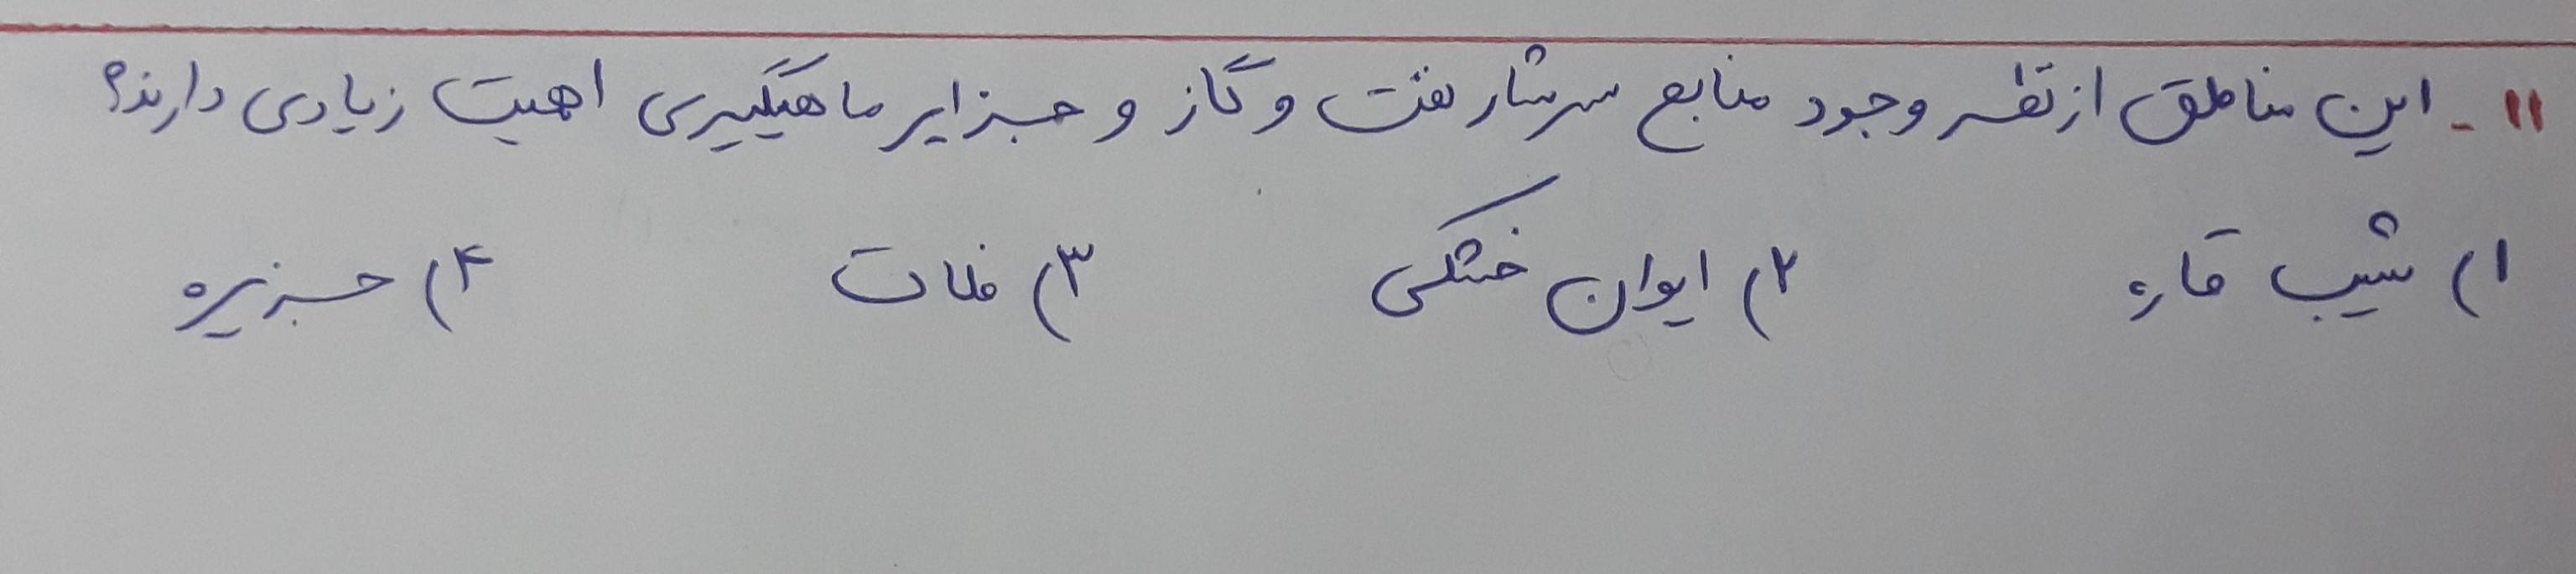 ۱۱- این مناطق از نظر وجود منابع سرشار نفت و گاز و جزایر ماهیگیری اهمیت زیادی دارند؟
۱) شیب قاره ۲) ایوان خشکی ۳) فلات ۴) جزیره